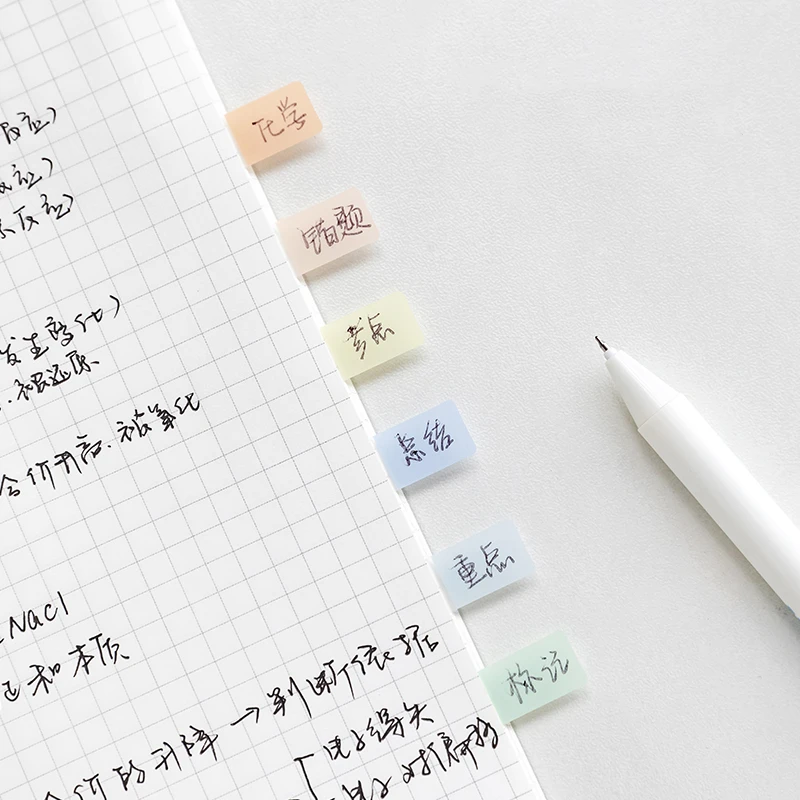 反应)
化学
反应)
原反应)
错题
发生变化)
考点
被还原
合价升高.被氧化
总结
重点
NaCl
和本质
标记
合价的升降→判断依据
电子得失
电子对偏移